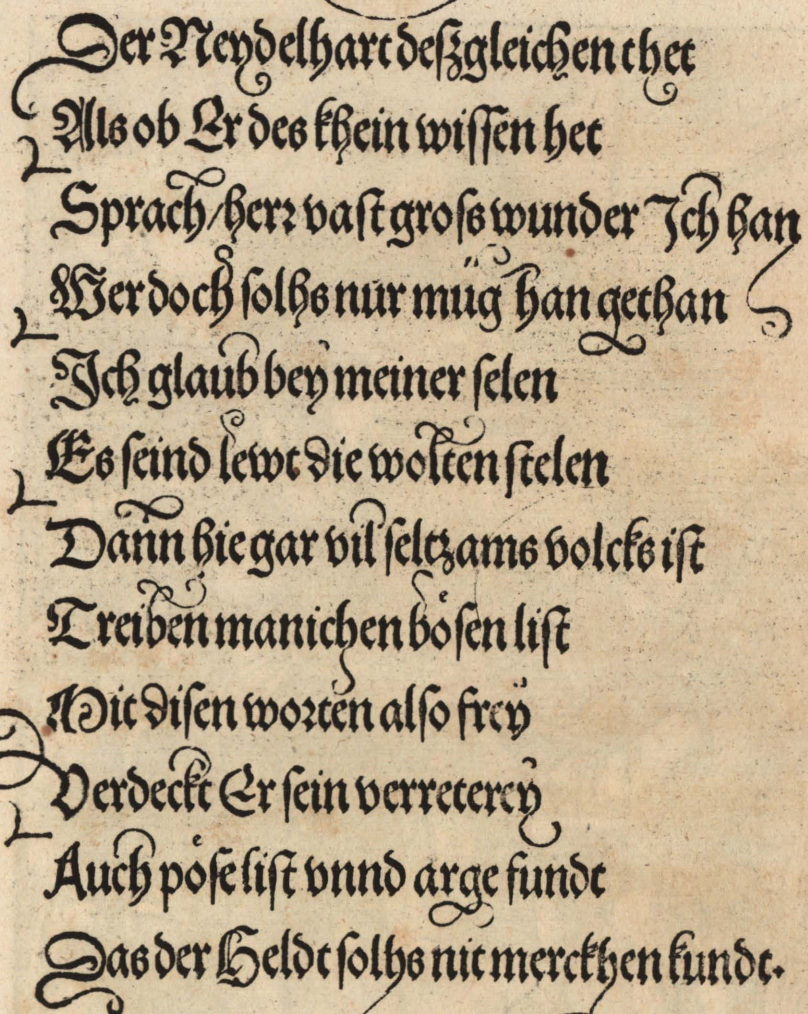 Der Neydelhart deſzgleichen thet
Als ob Er des khein wiſſen het
Sprach/herꝛ vaſt groſs wunder Ich han
Wer doch ſolhs nur müg han gethan
Ich glaub beÿ meiner ſelen
Es ſeind lewt die wolten ſtelen
Dann hie gar vil ſeltzams volcks iſt
Treiben manichen böſen liſt
Mit diſen woꝛten alſo freÿ
Verdeckt Er ſein verretereÿ
Auch pöſe liſt vnnd arge fundt
Das der Heldt ſolhs nit merckhen kundt.